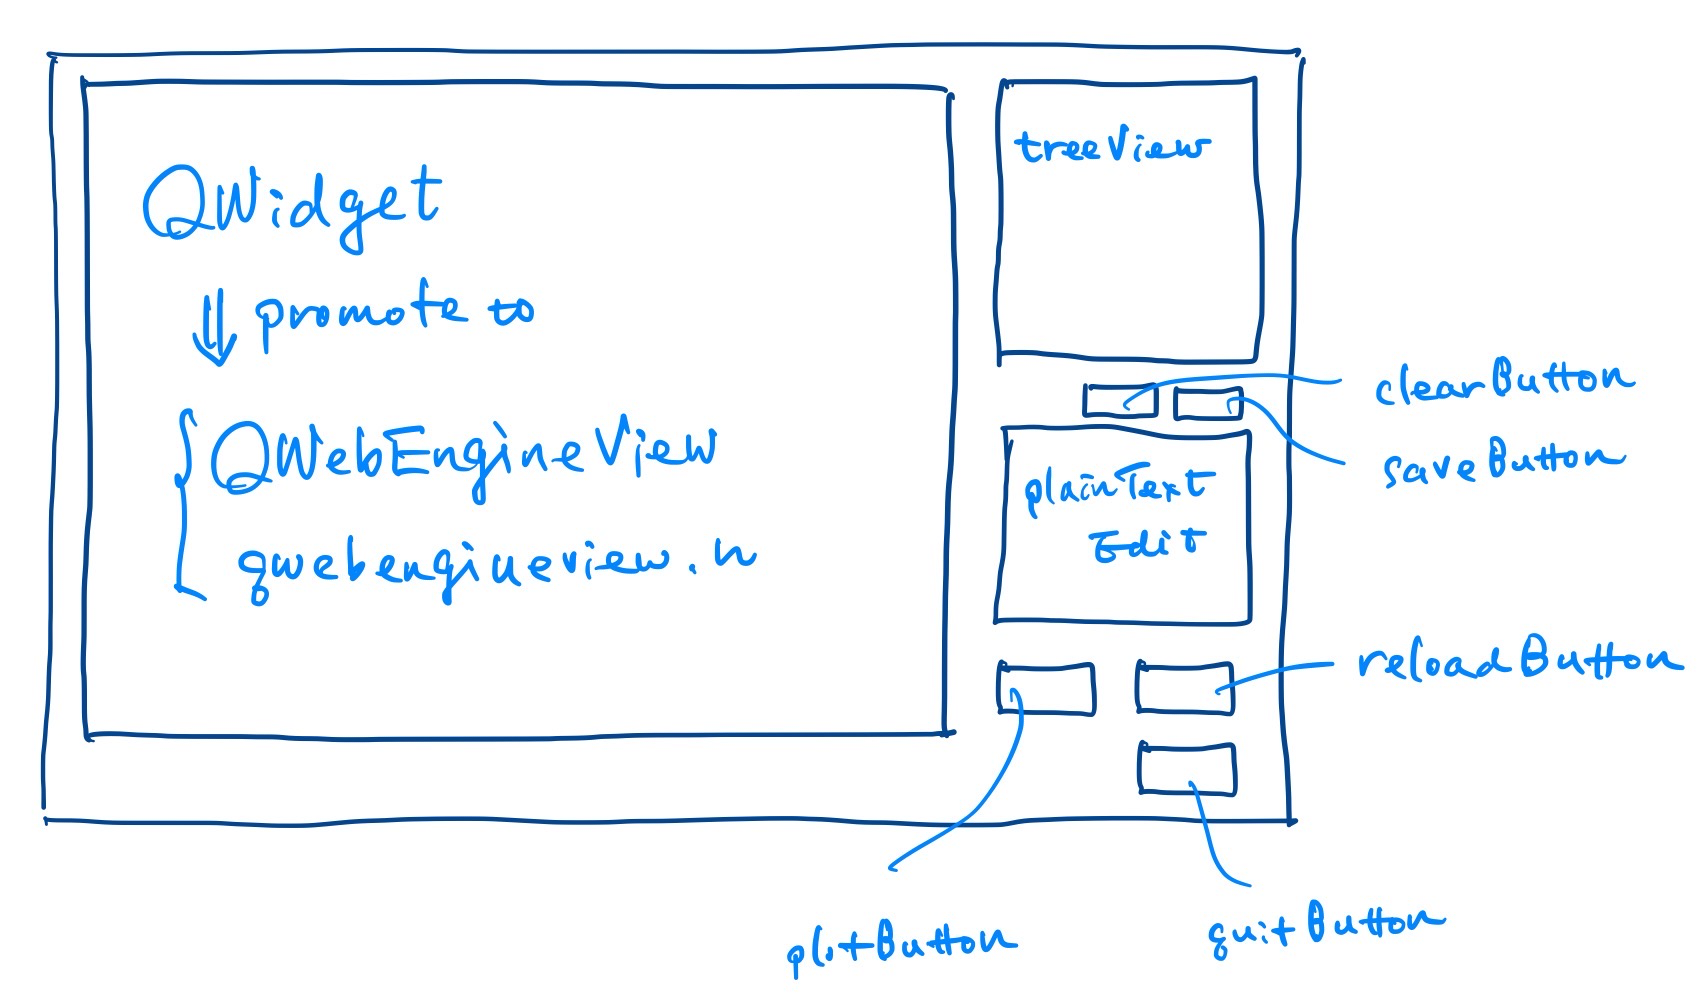 QWidget
promote to
QWebEngineView
qwebengineview.h
treeView
clearButton
saveButton
plainText
Edit
reloadButton
plotButton
quitButton